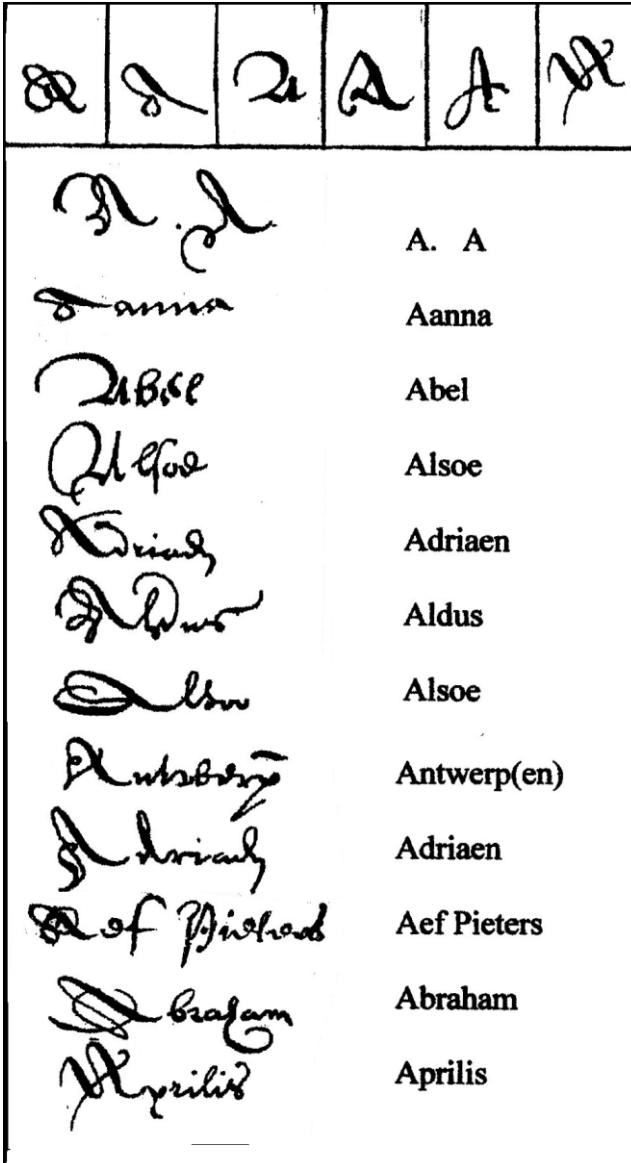 A A A A A A
A. A A. A
Aanna Aanna
Abel Abel
Alsoe Alsoe
Adriaen Adriaen
Aldus Aldus
Alsoe Alsoe
Antwerp Antwerp(en)
Adriaen Adriaen
Aef Pieters Aef Pieters
Abraham Abraham
Aprilis Aprilis